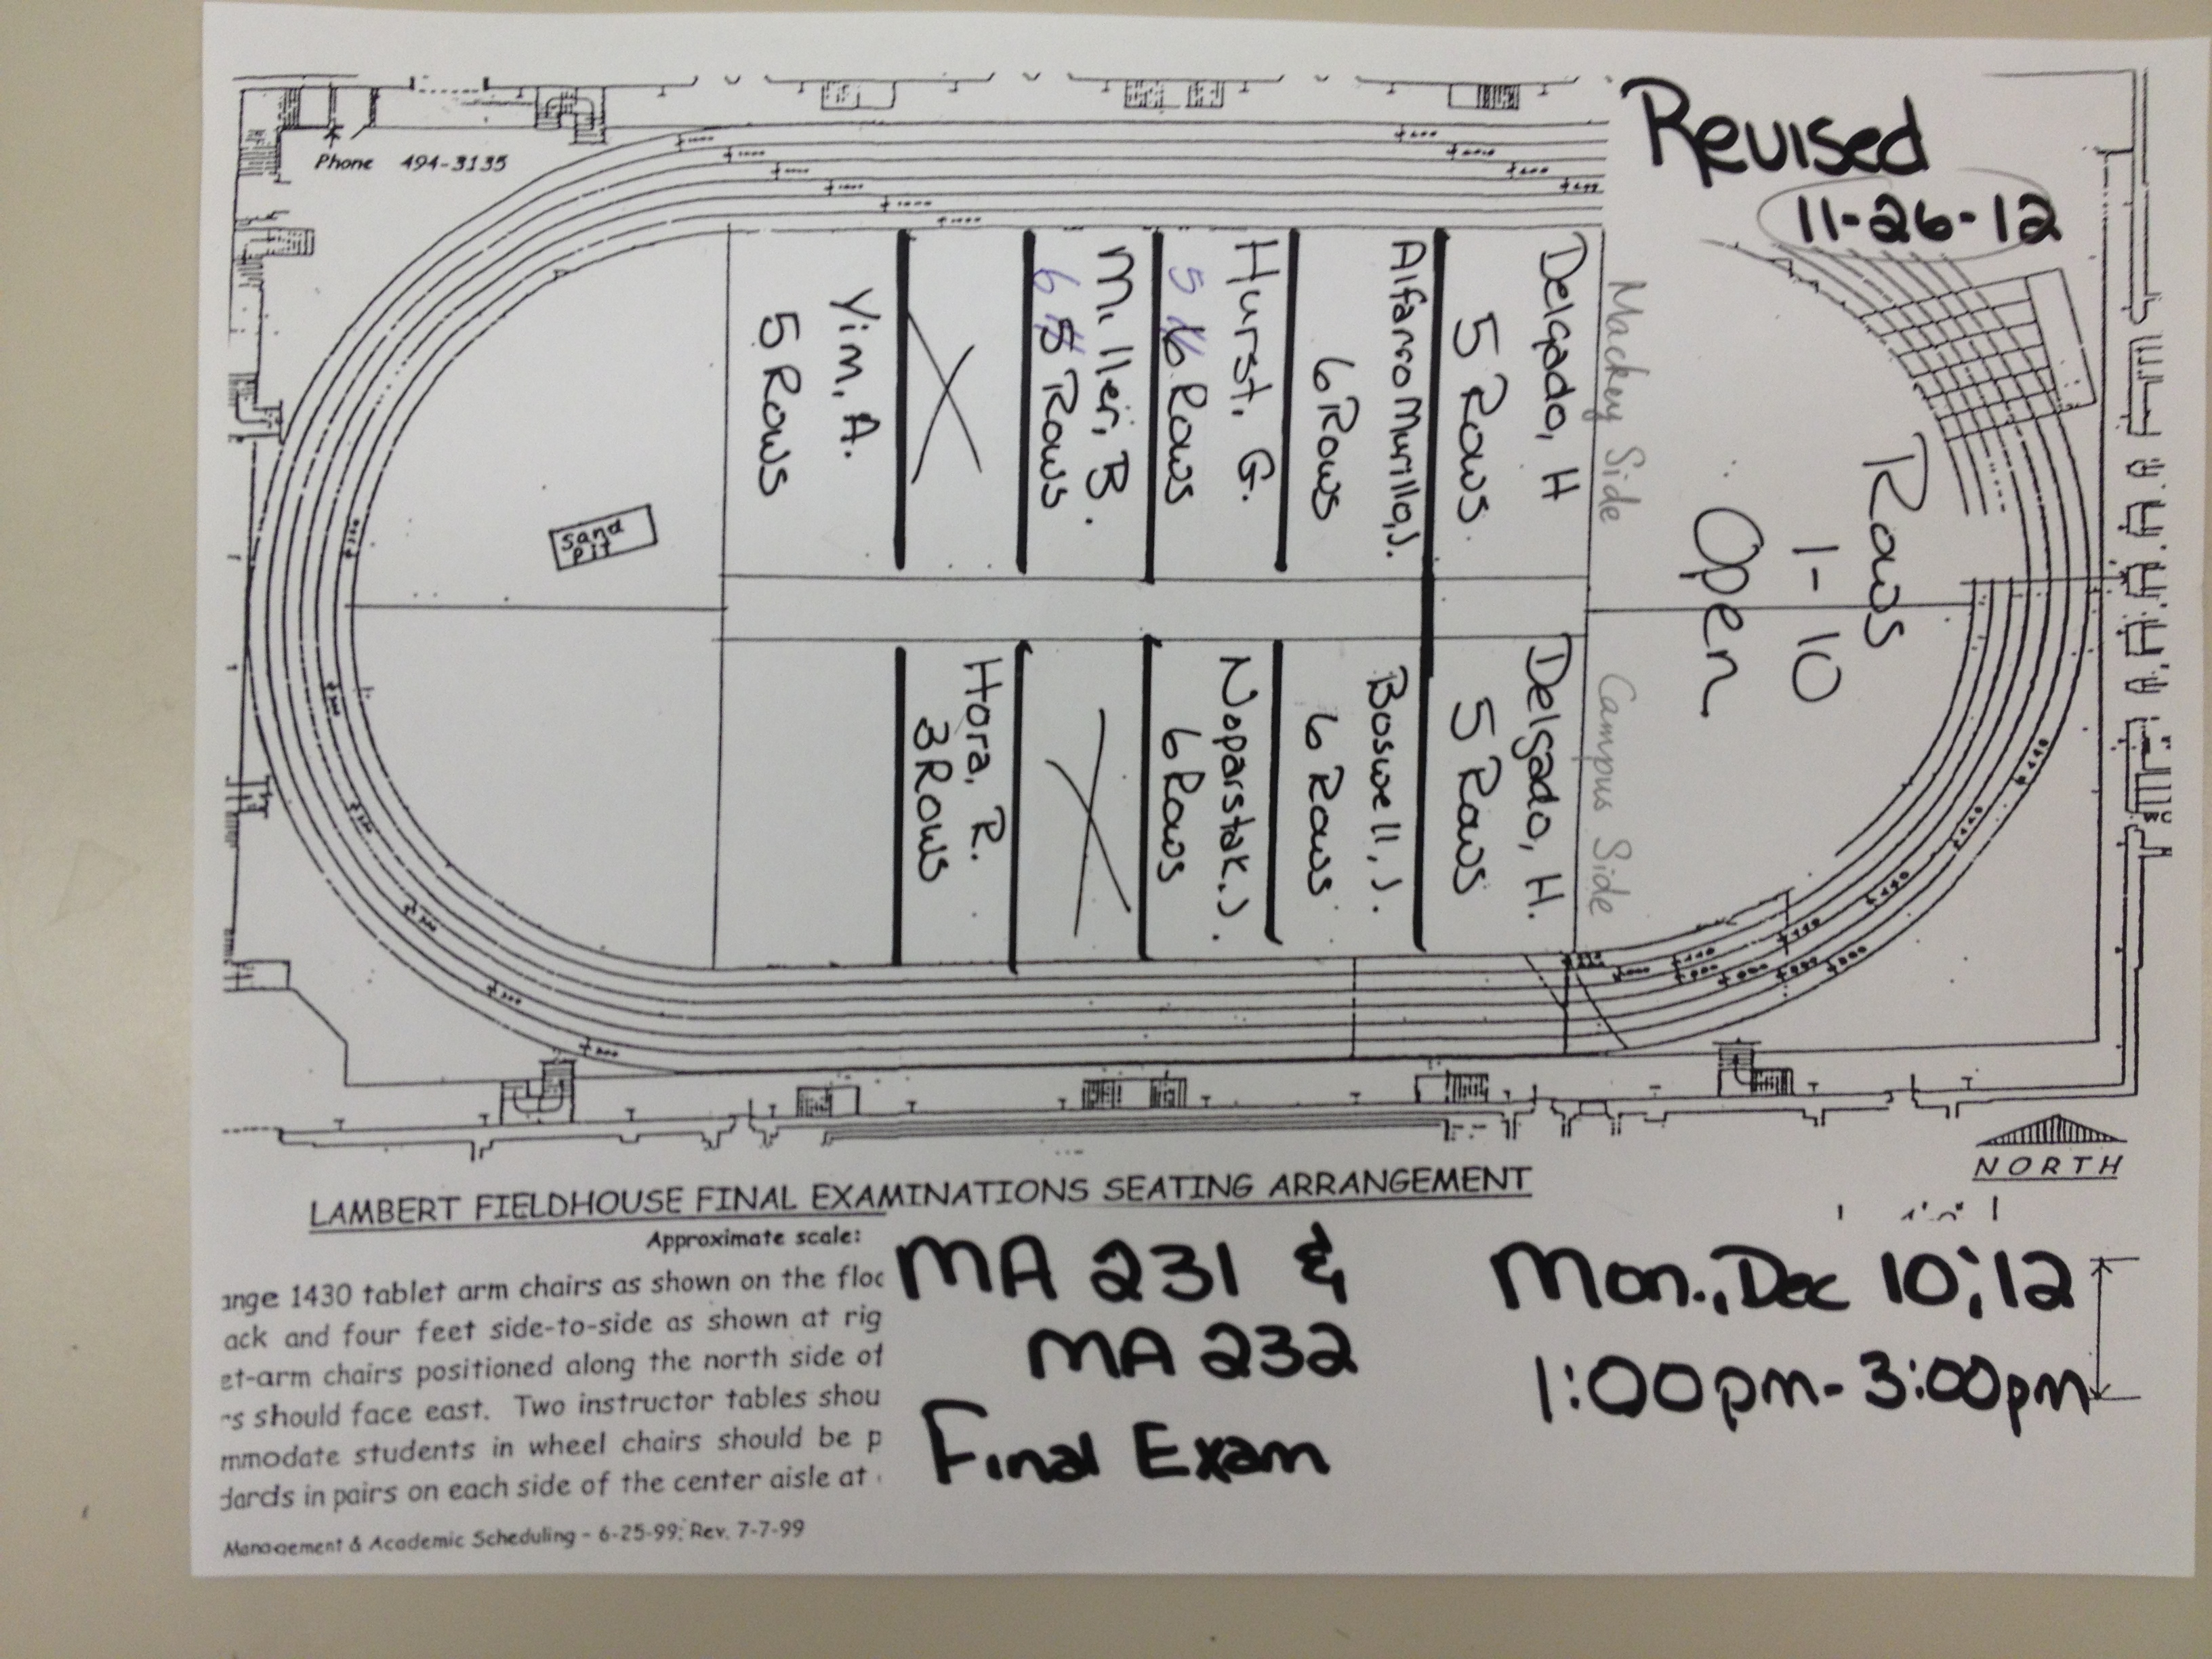 Revised
11-26-12
Phone 494-3135
Mackey Side
Campus Side
Rows
1-10
Open
Delgado, H
5 Rows
Alfanro Murillo, J.
6 Rows
Hurst, G.
5 6 Rows
Miller, B.
6 5 Rows
Yim, A.
5 Rows
sand
pit
Delgado, H.
5 Rows
Boswell, J.
6 Rows
Noparstak, J.
6 Rows
Hora, R.
3 Rows
WC
NORTH
LAMBERT FIELDHOUSE FINAL EXAMINATIONS SEATING ARRANGEMENT
Approximate scale:
ange 1430 tablet arm chairs as shown on the floo
ack and four feet side-to-side as shown at rig
et-arm chairs positioned along the north side of
rs should face east. Two instructor tables shou
mmodate students in wheel chairs should be p
dards in pairs on each side of the center aisle at
Management & Academic Scheduling - 6-25-99; Rev. 7-7-99
MA 231 &
MA 232
Final Exam
Mon., Dec 10, '12
1:00pm - 3:00pm